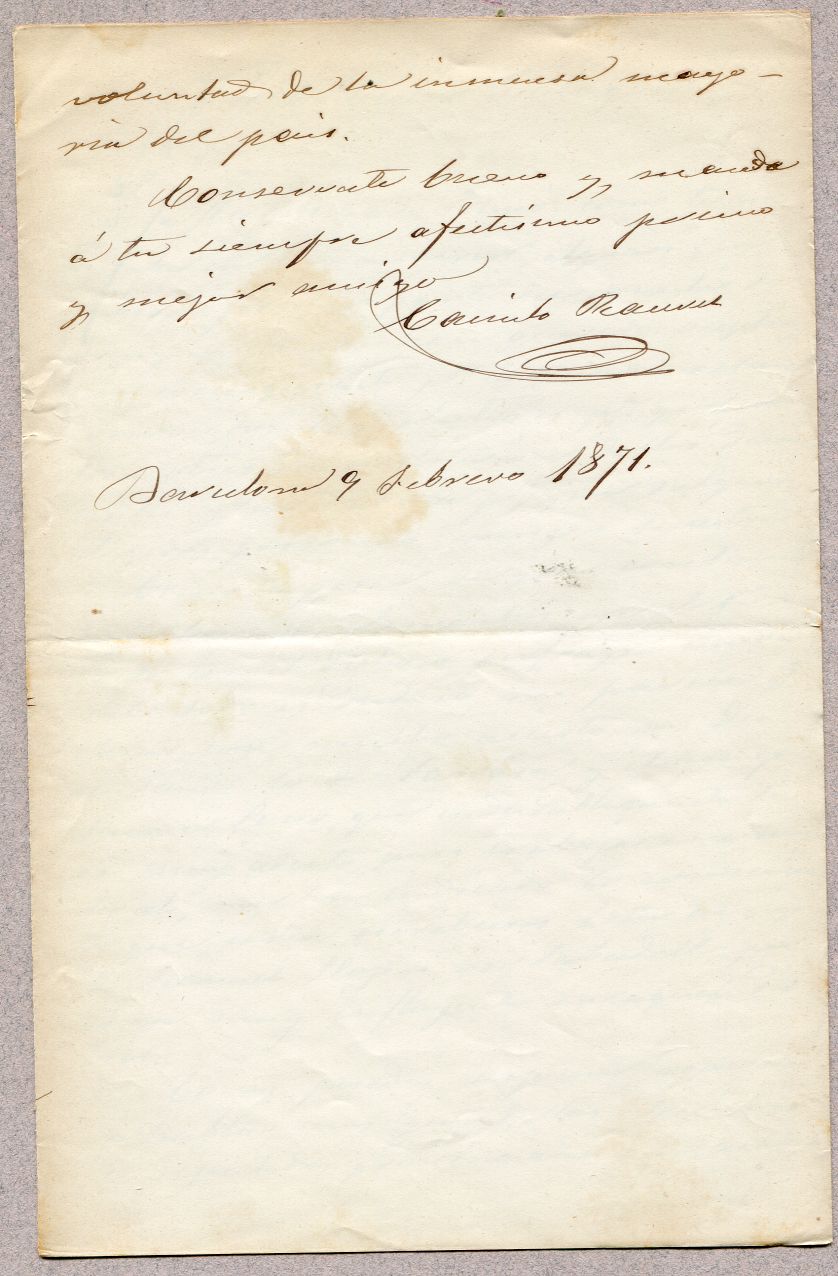 voluntad de la inmensa mayo-
ria del pais.
Conservate bueno y manda
á tu siempre afectisimo primo
y mejor amigo
Camilo
Barcelona 9 Febrero 1871.